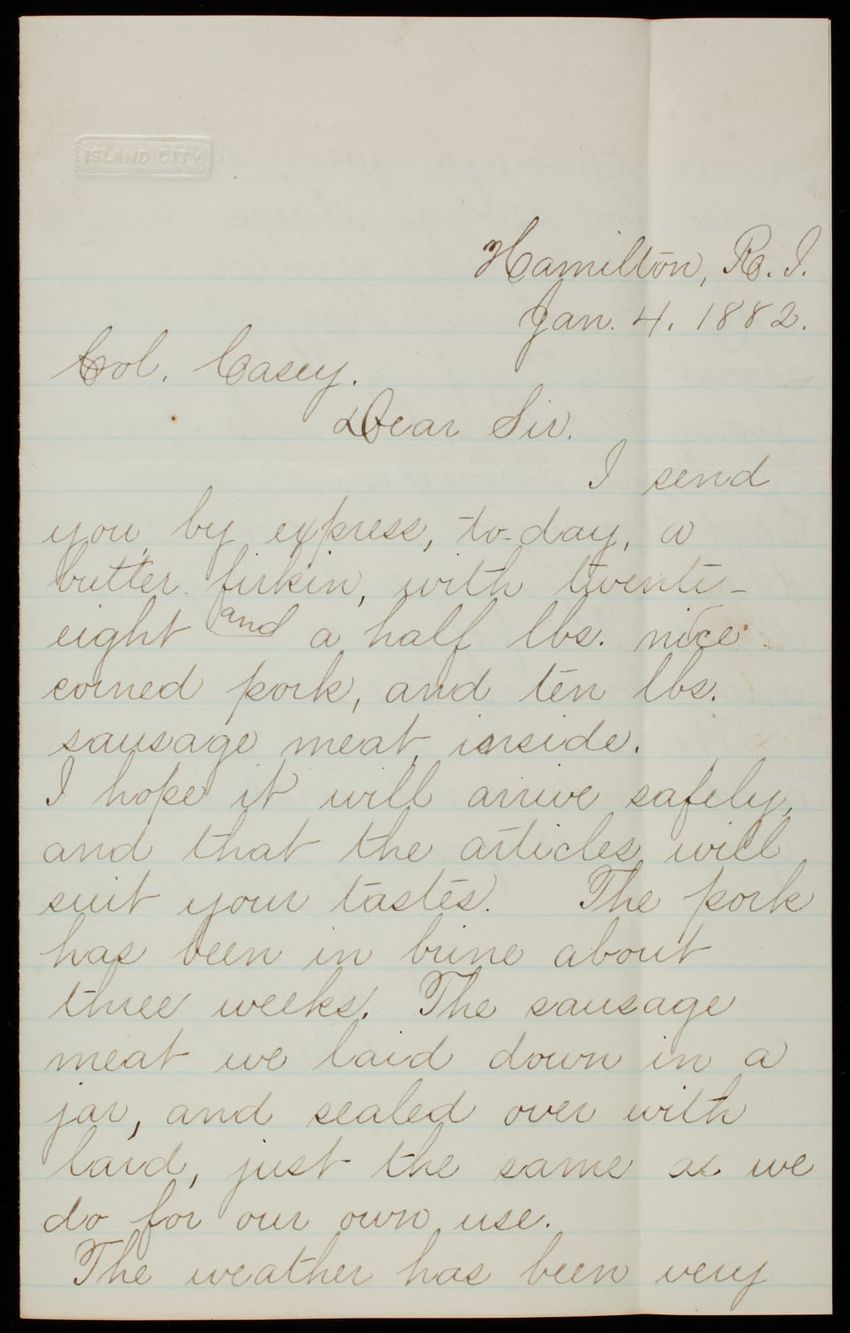 ISLAND CITY
Hamilton, R. I.
Jan. 4. 1882.
Col. Casey.
Dear Sir.
I send
you, by express, to-day, a
butter firkin, with twenti-
eight and a half lbs. nice
corned pork, and ten lbs.
sausage meat, inside.
I hope it will arrive safely,
and that the articles will
suit your tastes. The pork
has been in brine about
three weeks. The sausage
meat we laid down in a
jar, and sealed over with
lard, just the same as we
do for our own use.
The weather has been very